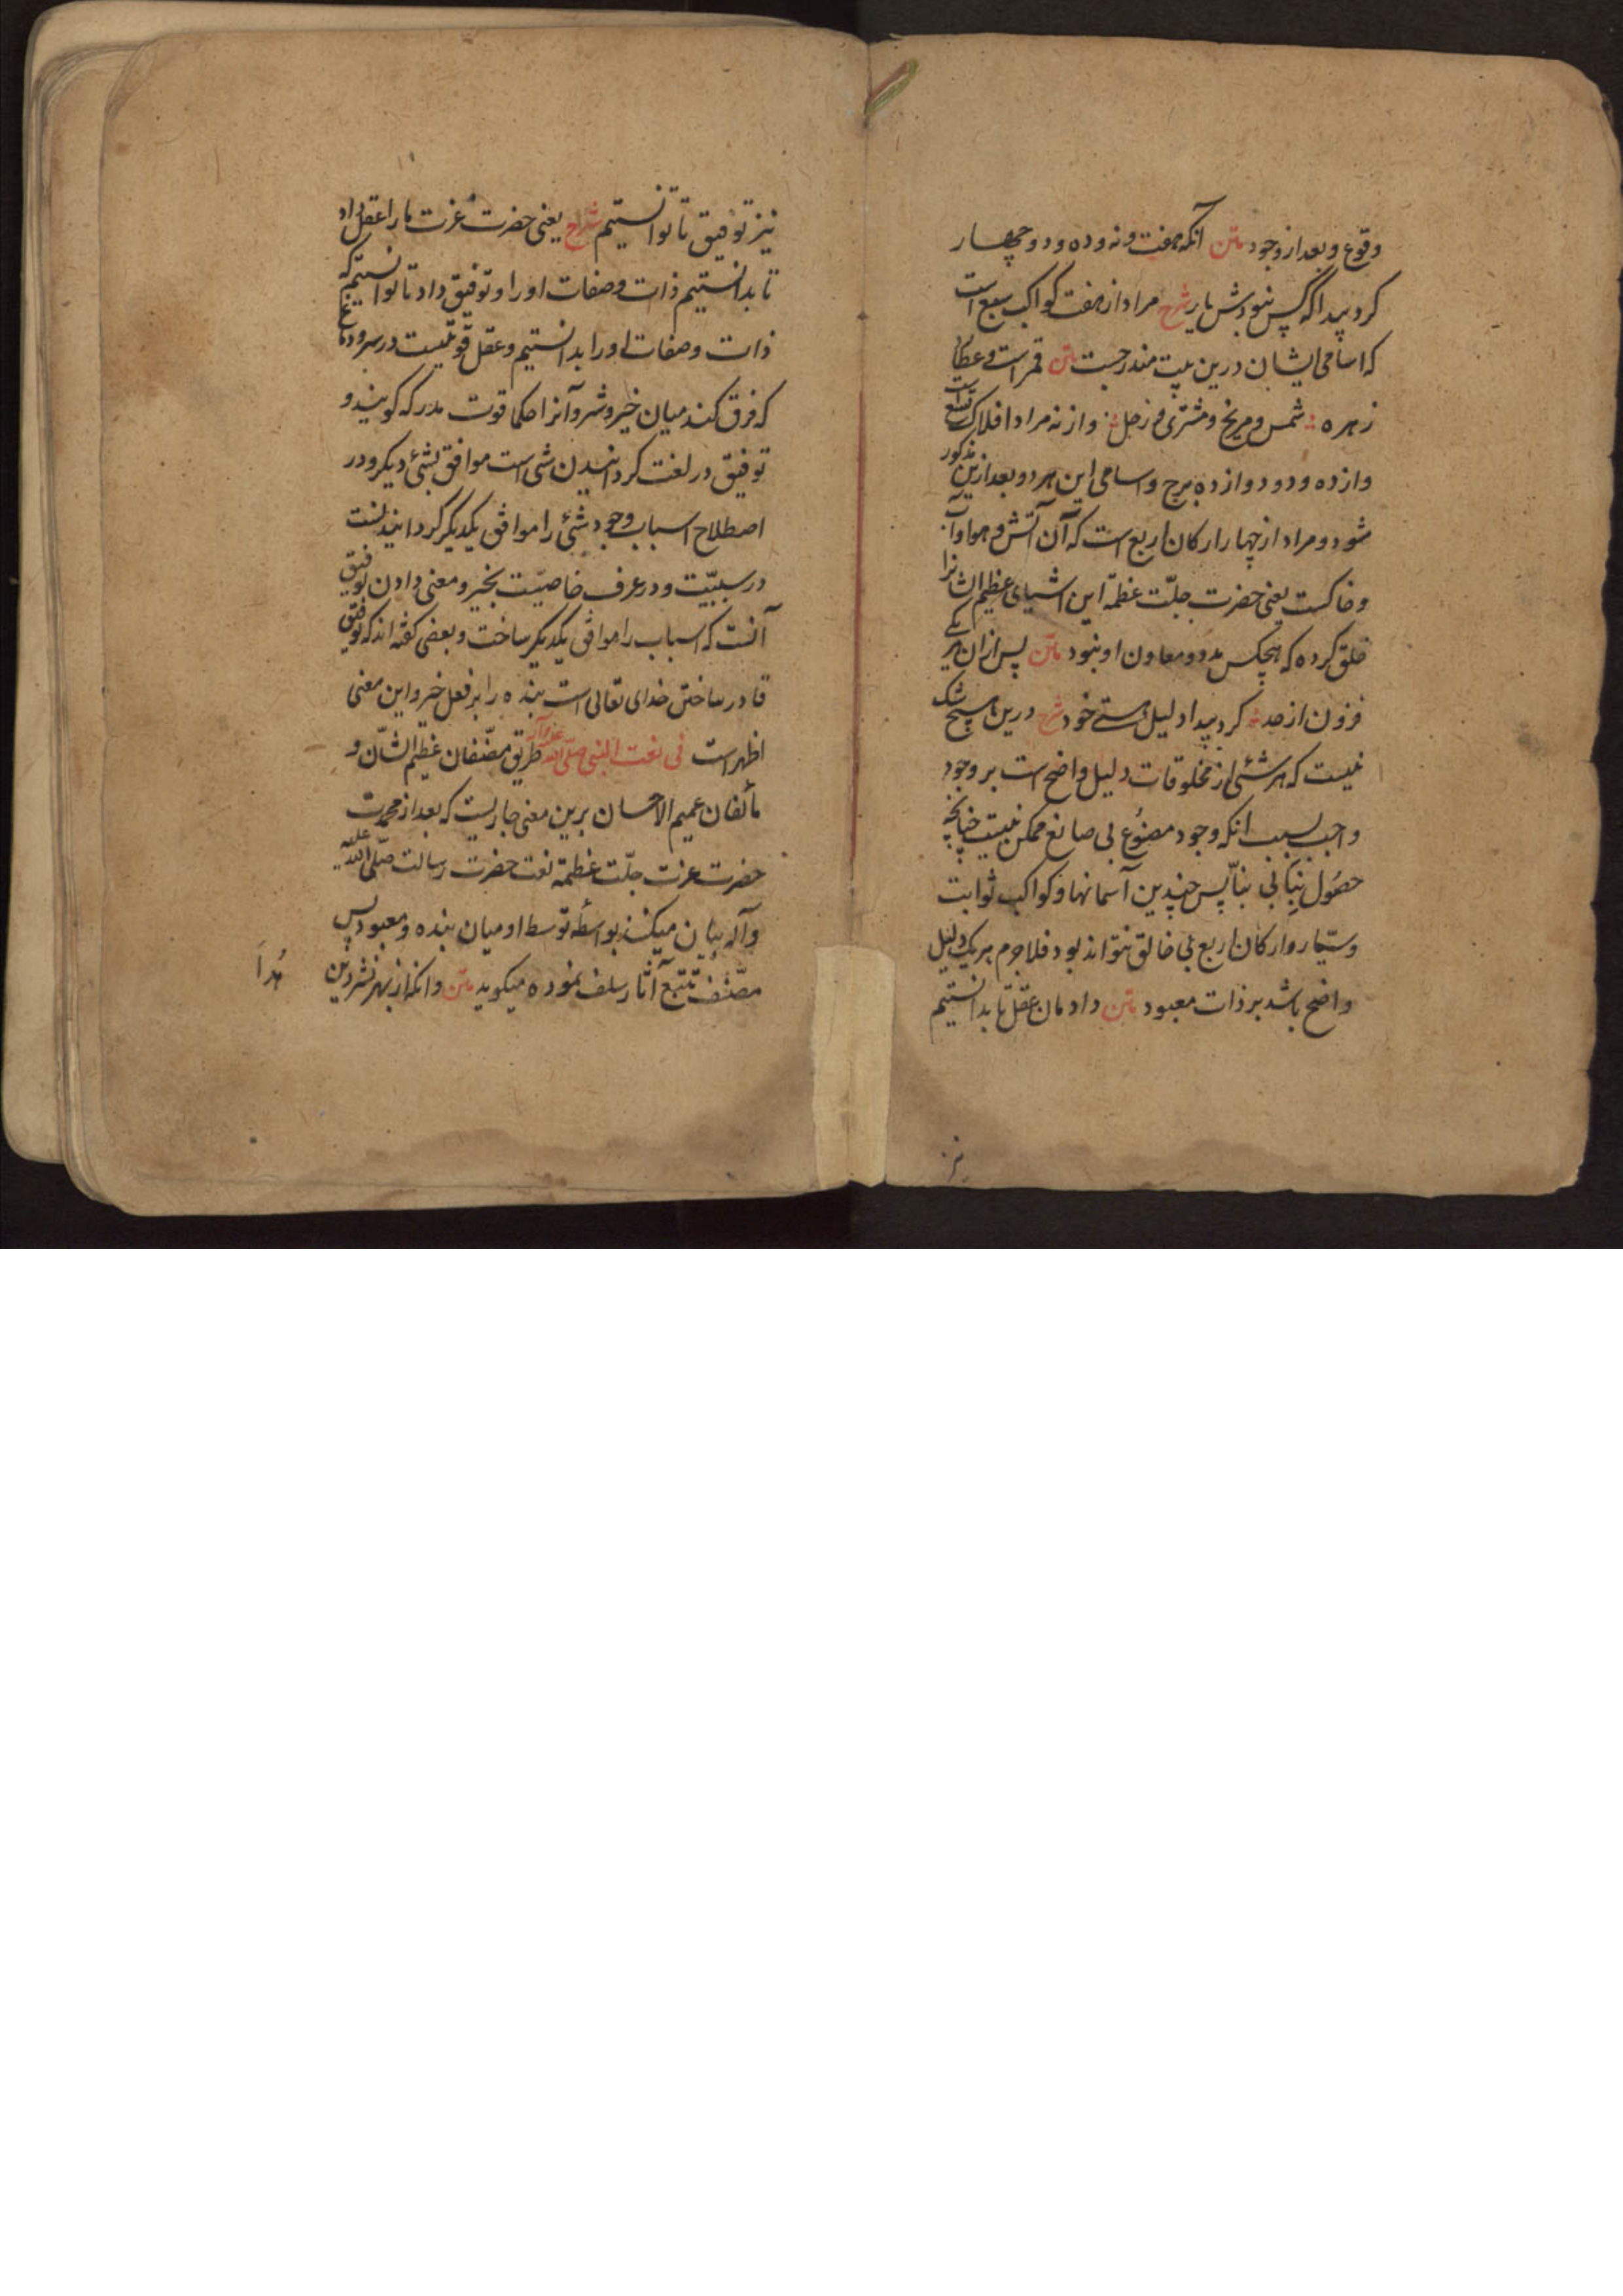 وقوع و بعد از وجود متن آنکه هفت و نه و ده و دو و چهار
کرد پیدا که کس نبودش یار شرح مراد از هفت کواکب سبع است
که اسامی ایشان درین بیت مندرجست متن قمر است و عطارد
زهره شمس و مریخ و مشتری و زحل و از نه مراد افلاک تسع است
و از ده و دو دوازده برج و اسامی این هر دو بعد ازین مذکور
شود و مراد از چهار ارکان اربع است که آن آتش و هوا و آب
و خاکست یعنی حضرت جلّت عظمته این اشیای عظیم الشانرا
خلق کرده که هیچکس مدد و معاون او نبود متن پس از ان هر یکی
فزون از صد کرد پیدا دلیل هستی خود شرح درین هیچ شک
نیست که هر شئی از مخلوقات دلیل واضح است بر وجود
واجب بسبب انکه وجود مصنُوع بی صانع ممکن نیست چنانچه
حصُول بنا بی بنّا پس چندین آسمانها و کواکب ثوابت
و سیّار و ارکان اربع بی خالق نتواند بود فلاجرم هر یک دلیل
واضح باشد بر ذات معبود متن دادمان عقل تا بدانستیم
نیز
نیز توفیق تا توانستیم شرح یعنی حضرت عزت ما را عقل داد
تا بدانستیم ذات و صفات او را و توفیق داد تا توانستیم که
ذات و صفات او را بدانستیم و عقل قوتیست در سر و دماغ
که فرق کند میان خیر و شر و آنرا حکما قوت مدرکه کویند و
توفیق در لغت کردانیدن شی است موافق بشئ دیکر و در
اصطلاح اسباب وجود شئی را موافق یکدیکر کردانیدنست
در سببیّت و در عرف خاصیّت بخیر و معنی دادن توفیق
آنست که اسباب را موافق یکدیکر ساخت و بعضی کفته اند که توفیق
قادر ساختن خدای تعالی است بنده را بر فعل خیر و این معنی
اظهر است فی نعت النبی صلّی الله علیه و آله طریق مصّنفان عظیم الشّان و
مألفان عمیم الاحسان برین معنی جاریست که بعد از محمدت
حضرت عزت جلّت عظمته نعت حضرت رسالت صلّی الله علیه
و آله بیان میکنند بواسطه توسط او میان بنده و معبود پس
مصّنف تتبع آثار سلف نموده میکوید متن وانکه از بهر نشر دین
هُدا